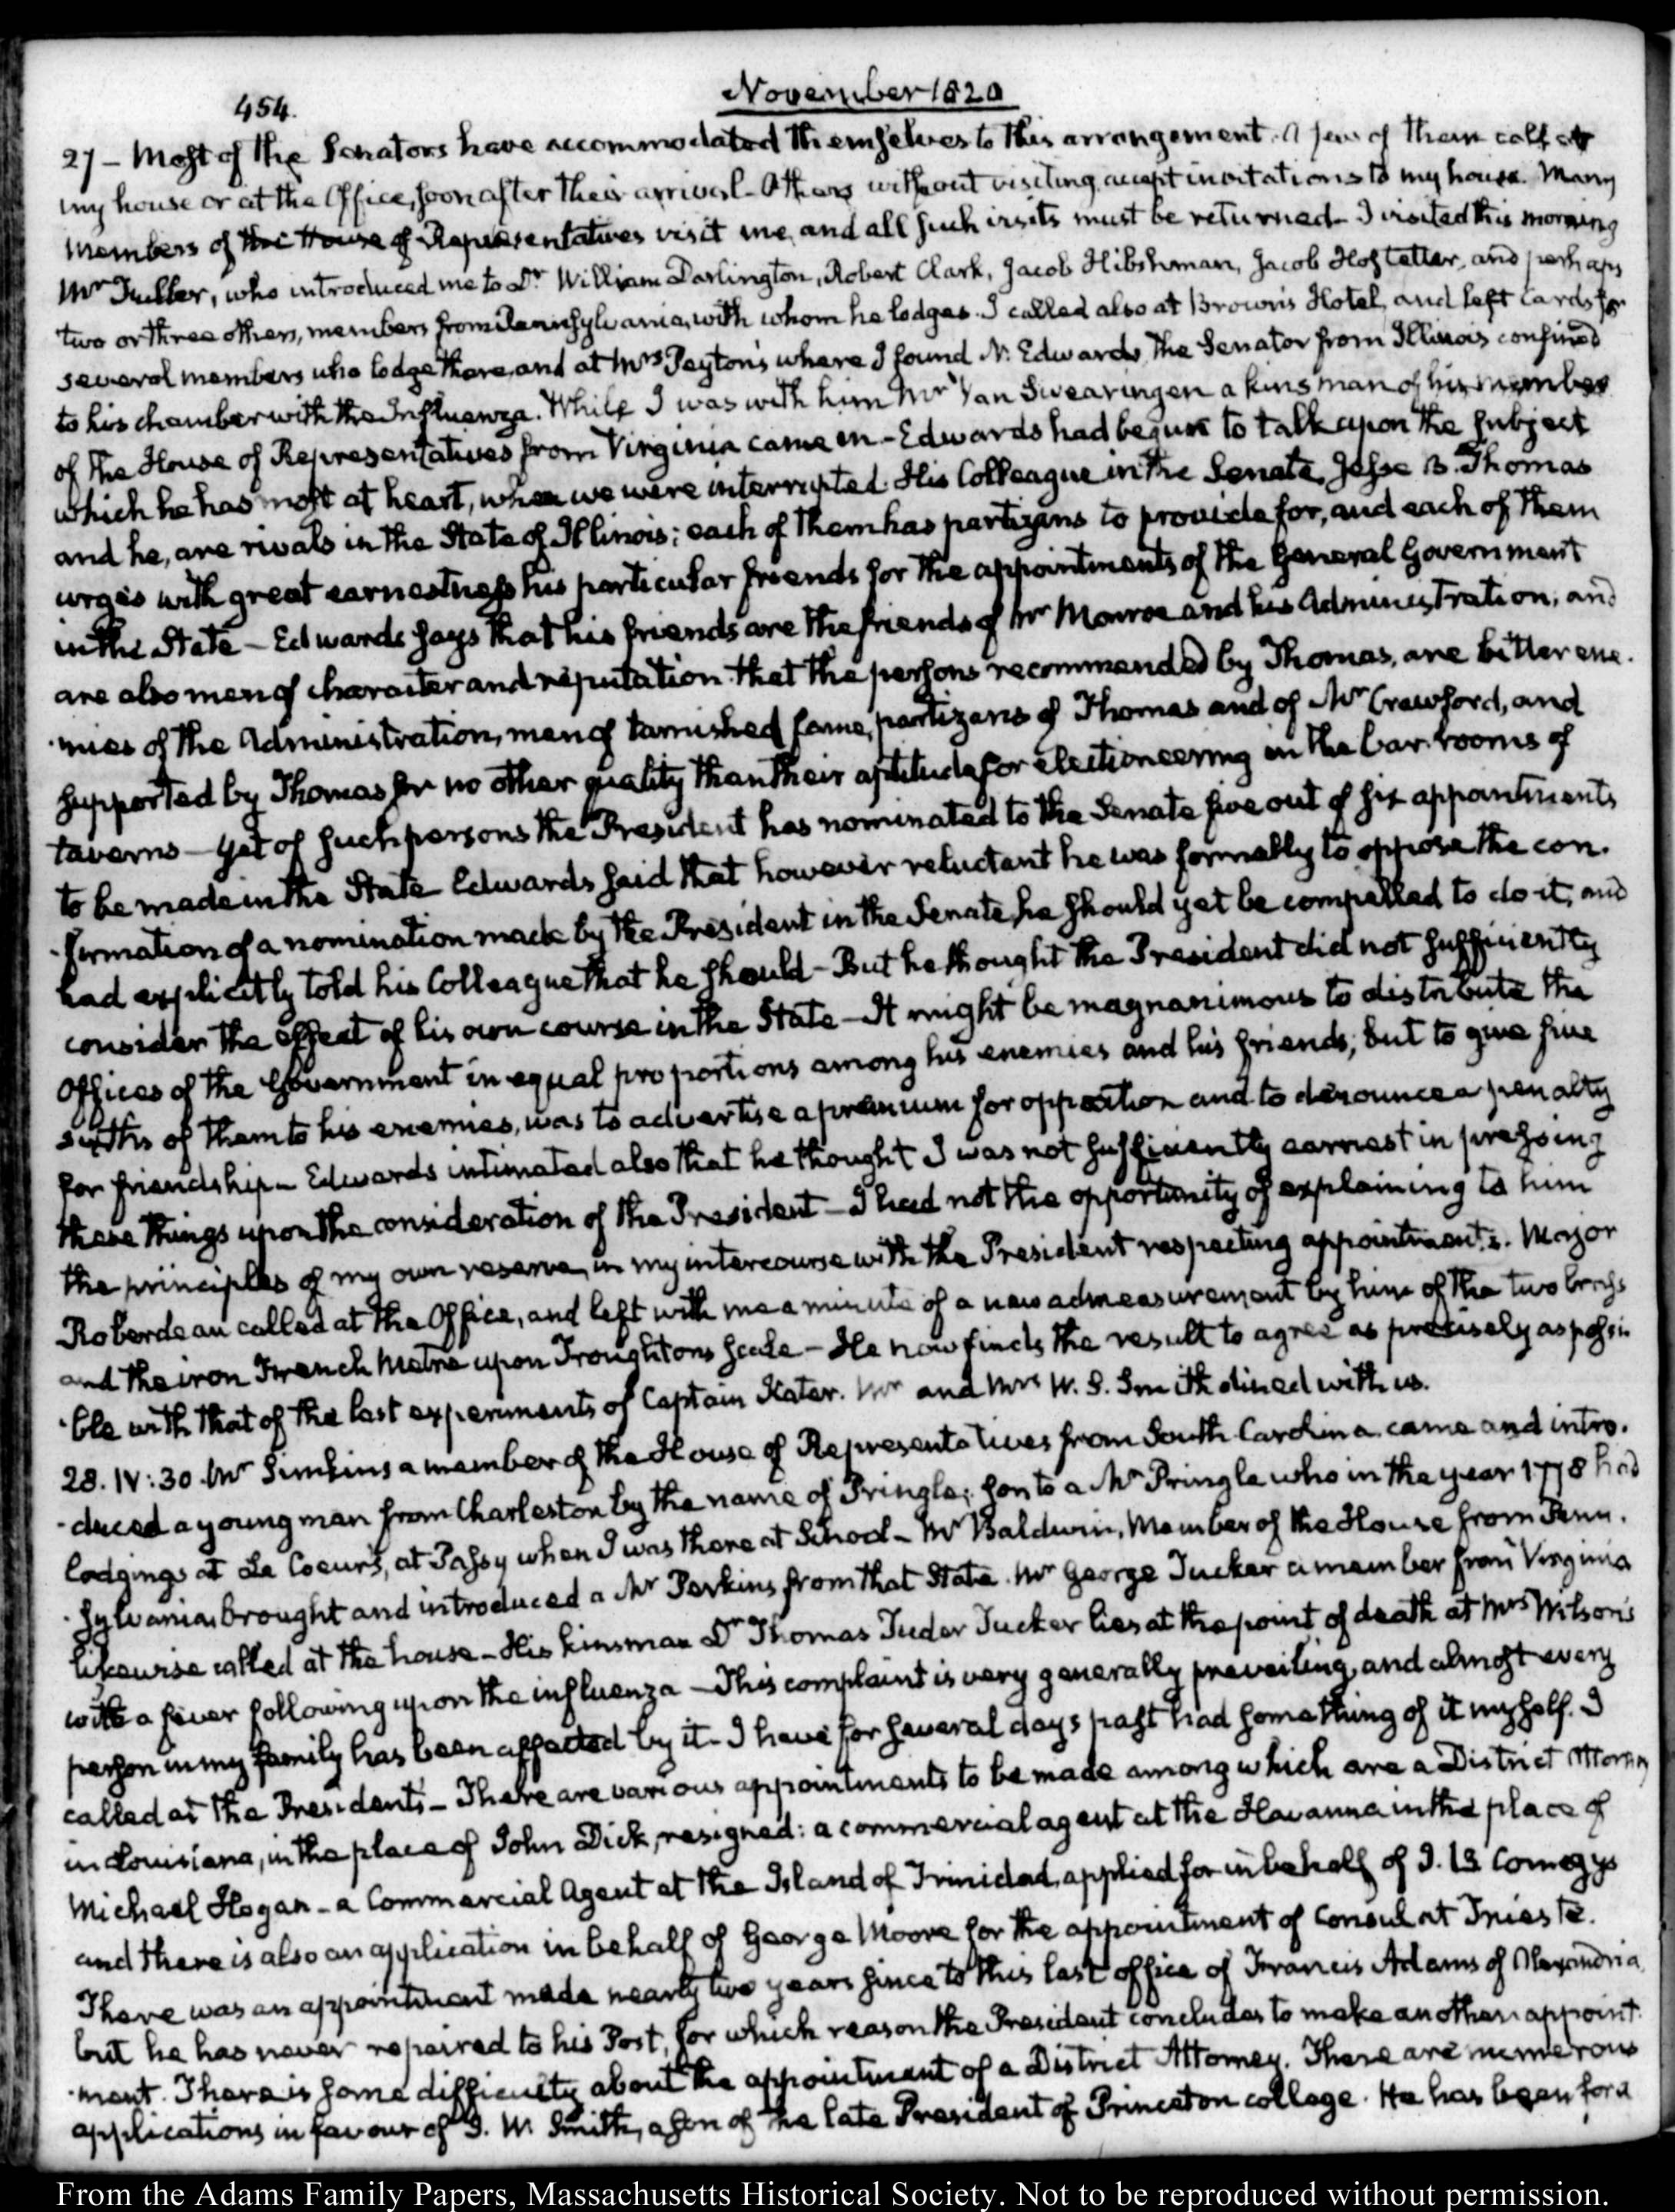 454.
November 1820
27 — Most of the Senators have accommodated themselves to this arrangement. A few of them call at
my house or at the Office, soon after their arrival — Others without visiting accept invitations to my house. Many
Members of the House of Representatives visit me, and all such visits must be returned — I visited this morning
Mr Fuller, who introduced me to Dr William Darlington, Robert Clark, Jacob Hibshman, Jacob Hostetter, and perhaps
two or three others, members from Pennsylvania, with whom he lodges. I called also at Brown's Hotel, and left Cards for
several members who lodge there, and at Mrs Peyton's where I found N. Edwards, the Senator from Illinois confined
to his chamber with the Influenza. While I was with him Mr Van Swearingen a kinsman of his, member
of the House of Representatives from Virginia came in — Edwards had begun to talk upon the subject
which he has most at heart, when we were interrupted. His Colleague in the Senate, Jesse B. Thomas
and he, are rivals in the State of Illinois; each of them has partizans to provide for, and each of them
urges with great earnestness his particular friends for the appointments of the General Government
in the State — Edwards says that his friends are the friends of Mr Monroe and his Administration, and
are also men of character and reputation. that the persons recommended by Thomas, are bitter ene-
-mies of the Administration, men of tarnished fame, partizans of Thomas and of Mr Crawford, and
supported by Thomas for no other quality than their aptitude for electioneering in the bar-rooms of
taverns — Yet of such persons the President has nominated to the Senate five out of six appointments
to be made in the State Edwards said that however reluctant he was formally to oppose the con-
-firmation of a nomination made by the President in the Senate, he should yet be compelled to do it, and
had explicitly told his Colleague that he should — But he thought the President did not sufficiently
consider the effect of his own course in the State — It might be magnanimous to distribute the
Offices of the Government in equal proportions among his enemies and his friends; but to give five
sixths of them to his enemies, was to advertise a premium for opposition and to denounce a penalty
for friendship — Edwards intimated also that he thought I was not sufficiently earnest in pressing
these things upon the consideration of the President — I had not the opportunity of explaining to him
the principles of my own reserve, in my intercourse with the President respecting appointments. Major
Roberdeau called at the Office, and left with me a minute of a new admeasurement by him of the two brass
and the iron French Metre upon Troughton's scale — He now finds the result to agree as precisely as possi-
-ble with that of the last experiments of Captain Kater. Mr and Mrs W. S. Smith dined with us.
28. IV:30. Mr Simkins a member of the House of Representatives from South-Carolina came and intro-
-duced a young man from Charleston by the name of Pringle; son to a Mr Pringle who in the year 1778 had
lodgings at Le Coeur's, at Passy when I was there at School — Mr Baldwin, Member of the House from Penn-
-sylvania, brought and introduced a Mr Perkins from that State. Mr George Tucker a member from Virginia
likewise called at the house — His kinsman Dr Thomas Tudor Tucker lies at the point of death at Mrs Wilson's
with a fever following upon the influenza — This complaint is very generally prevailing, and almost every
person in my family has been affected by it — I have for several days past had something of it myself. I
called at the President's — There are various appointments to be made among which are a District Attorney
in Louisiana, in the place of John Dick, resigned: a commercial agent at the Havanna in the place of
Michael Hogan — a Commercial Agent at the Island of Trinidad, applied for in behalf of J. B. Comegys
and there is also an application in behalf of George Moore for the appointment of Consul at Trieste.
There was an appointment made nearly two years since to this last office of Francis Adams of Alexandria
but he has never repaired to his Post, for which reason the President concludes to make another appoint-
-ment. There is some difficulty about the appointment of a District Attorney. There are numerous
applications in favour of J. W. Smith, a son of the late President of Princeton college. He has been for a
From the Adams Family Papers, Massachusetts Historical Society. Not to be reproduced without permission.